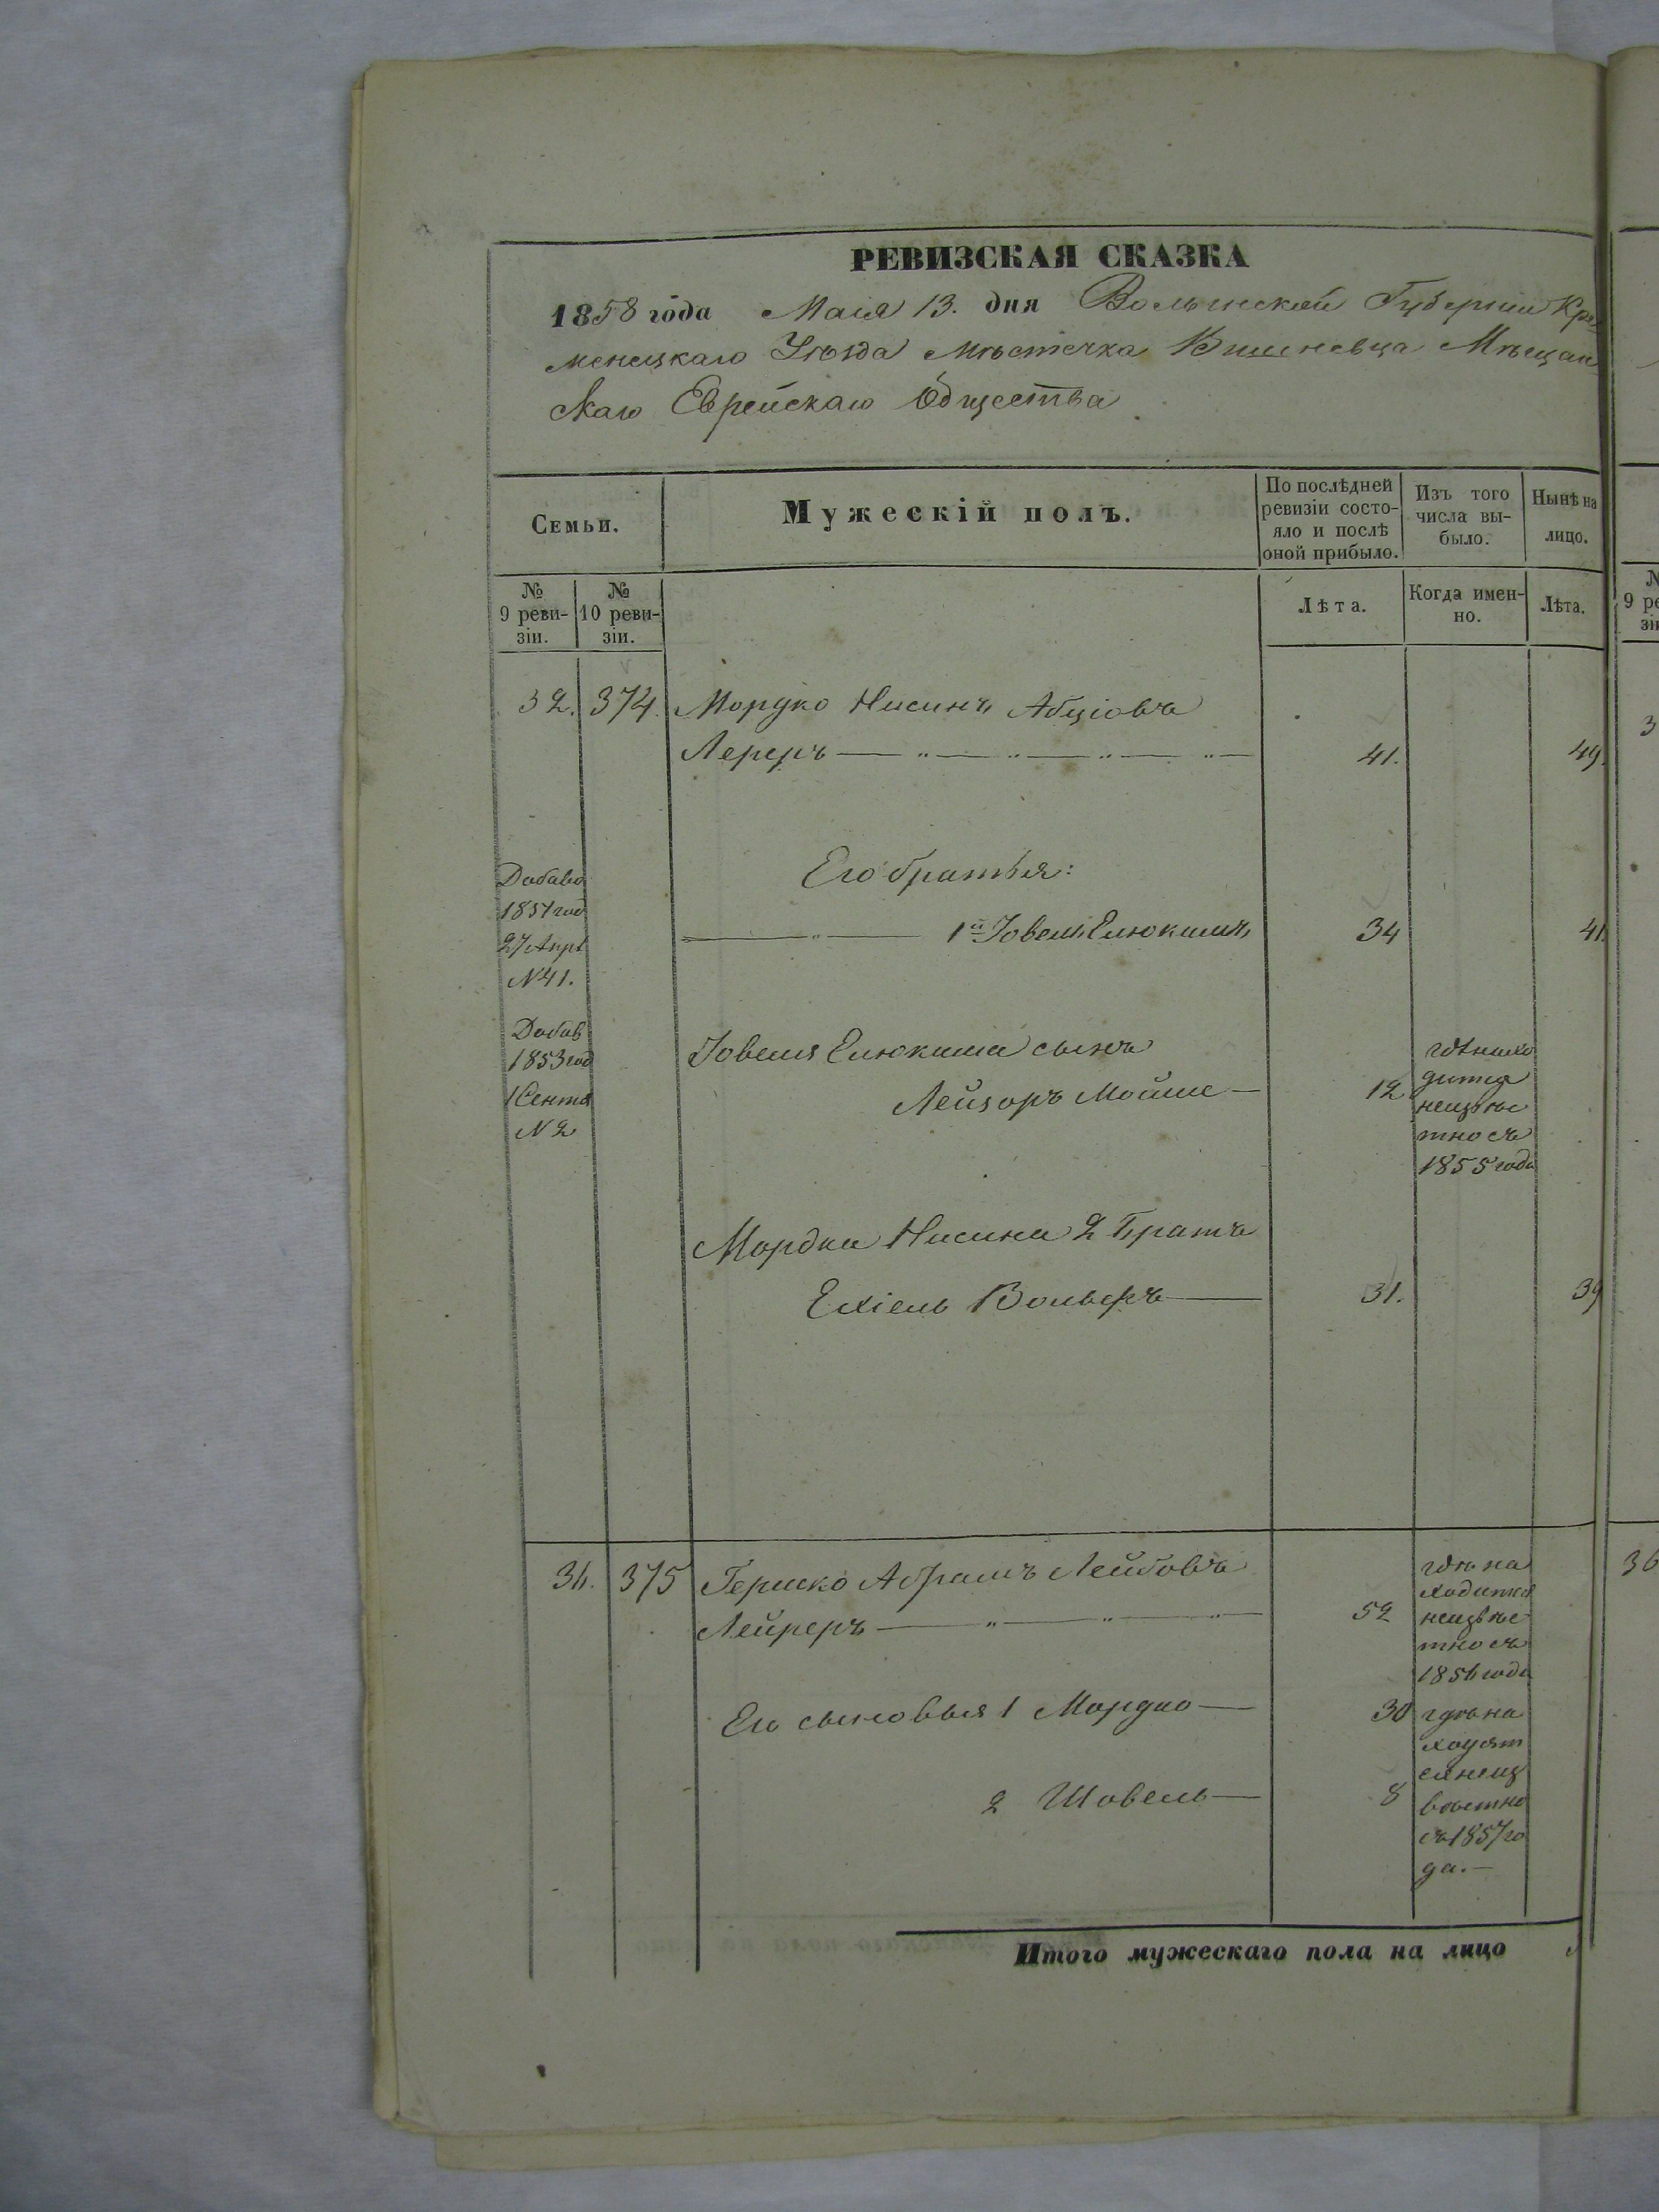 РЕВИЗСКАЯ СКАЗКА
1858 года Маія 13. дня Волынской Губерніи Кре
менецкаго Уѣзда Мѣстечка Вишневца Мѣщан
скаго Еврейскаго Общества
Семьи.
Мужескій полъ.
По послѣдней ревизіи состо-
яло и послѣ оной прибыло.
Изъ того числа вы-
было.
Нынѣ на лицо.
№ 9 реви-
зіи.
№ 10 реви-
зіи.
Лѣта.
Когда имен-
но.
Лѣта.
32. 374. Мордко Нисинъ Абціовъ
Лереръ 41. 49.
Его братья:
Добаво
1851 год
27 Апрѣ
N 41.
1й Іовель Елюкимъ 34 41
Добав
1853 год
1 Сентя
N 2
Іовеля Елюкима сынъ
Лейзоръ Мойше 12
гдѣ нахо
дится
неизвѣс
тно съ
1855 года
Мордка Нисина 2 Братъ
Ехіель Вольфъ 31. 39
36. 375 Гершко Абрамъ Лейбовъ
Лейреръ 52
гдѣ на
ходится
неизвѣс
тно съ
1856 года
Его сыновья 1 Мордко 30
2 Шовель 8
гдѣ на
ходят
ся неиз
вѣстно
съ 1857 го
да.
Итого мужескаго пола на лицо